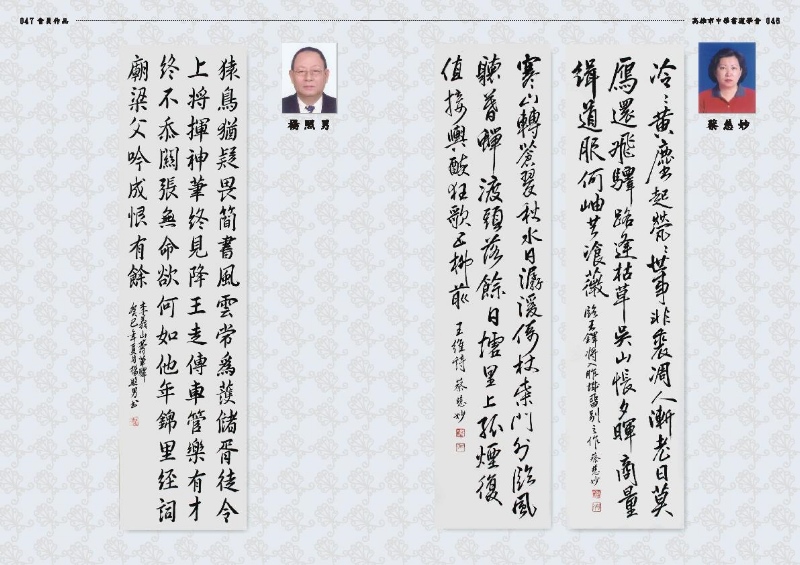 高雄市中華書道學會 046
蔡慈妙
冷冷黃塵起
世事非裘凋人漸老日莫
鴈還飛驛路逢枯草吳山悵夕暉商量
緝道服何岫共飡薇
臨王鐸
作 蔡慈妙
寒山轉蒼翠秋水日潺湲倚杖柴門外臨風
聽暮蟬渡頭落餘日墟里上孤煙復
值接輿醉狂歌五柳前
王維詩 蔡慈妙
047 會員作品
楊照男
猿鳥猶疑畏簡書風雲常為護儲胥徒令
上將揮神筆終見降王走傳車管樂有才
終不忝關張無命欲何如他年錦里經祠
廟梁父吟成恨有餘
李義山籌筆驛
癸巳年夏月楊照男書